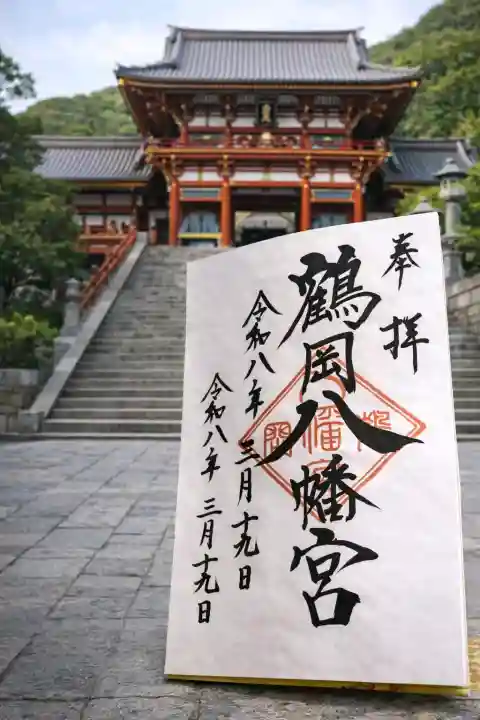 奉拝
鶴岡八幡宮
令和八年三月十九日
令和八年三月十九日